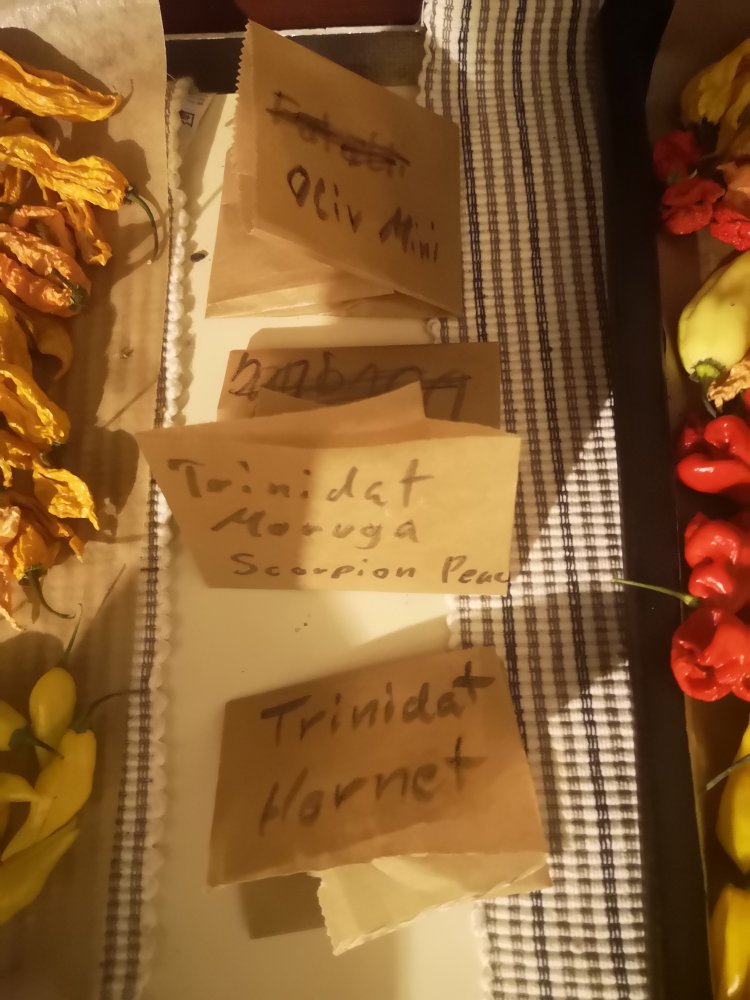 Oliv Mini
Trinidat
Moruga
Scorpion Peac
Trinidat
Hornet